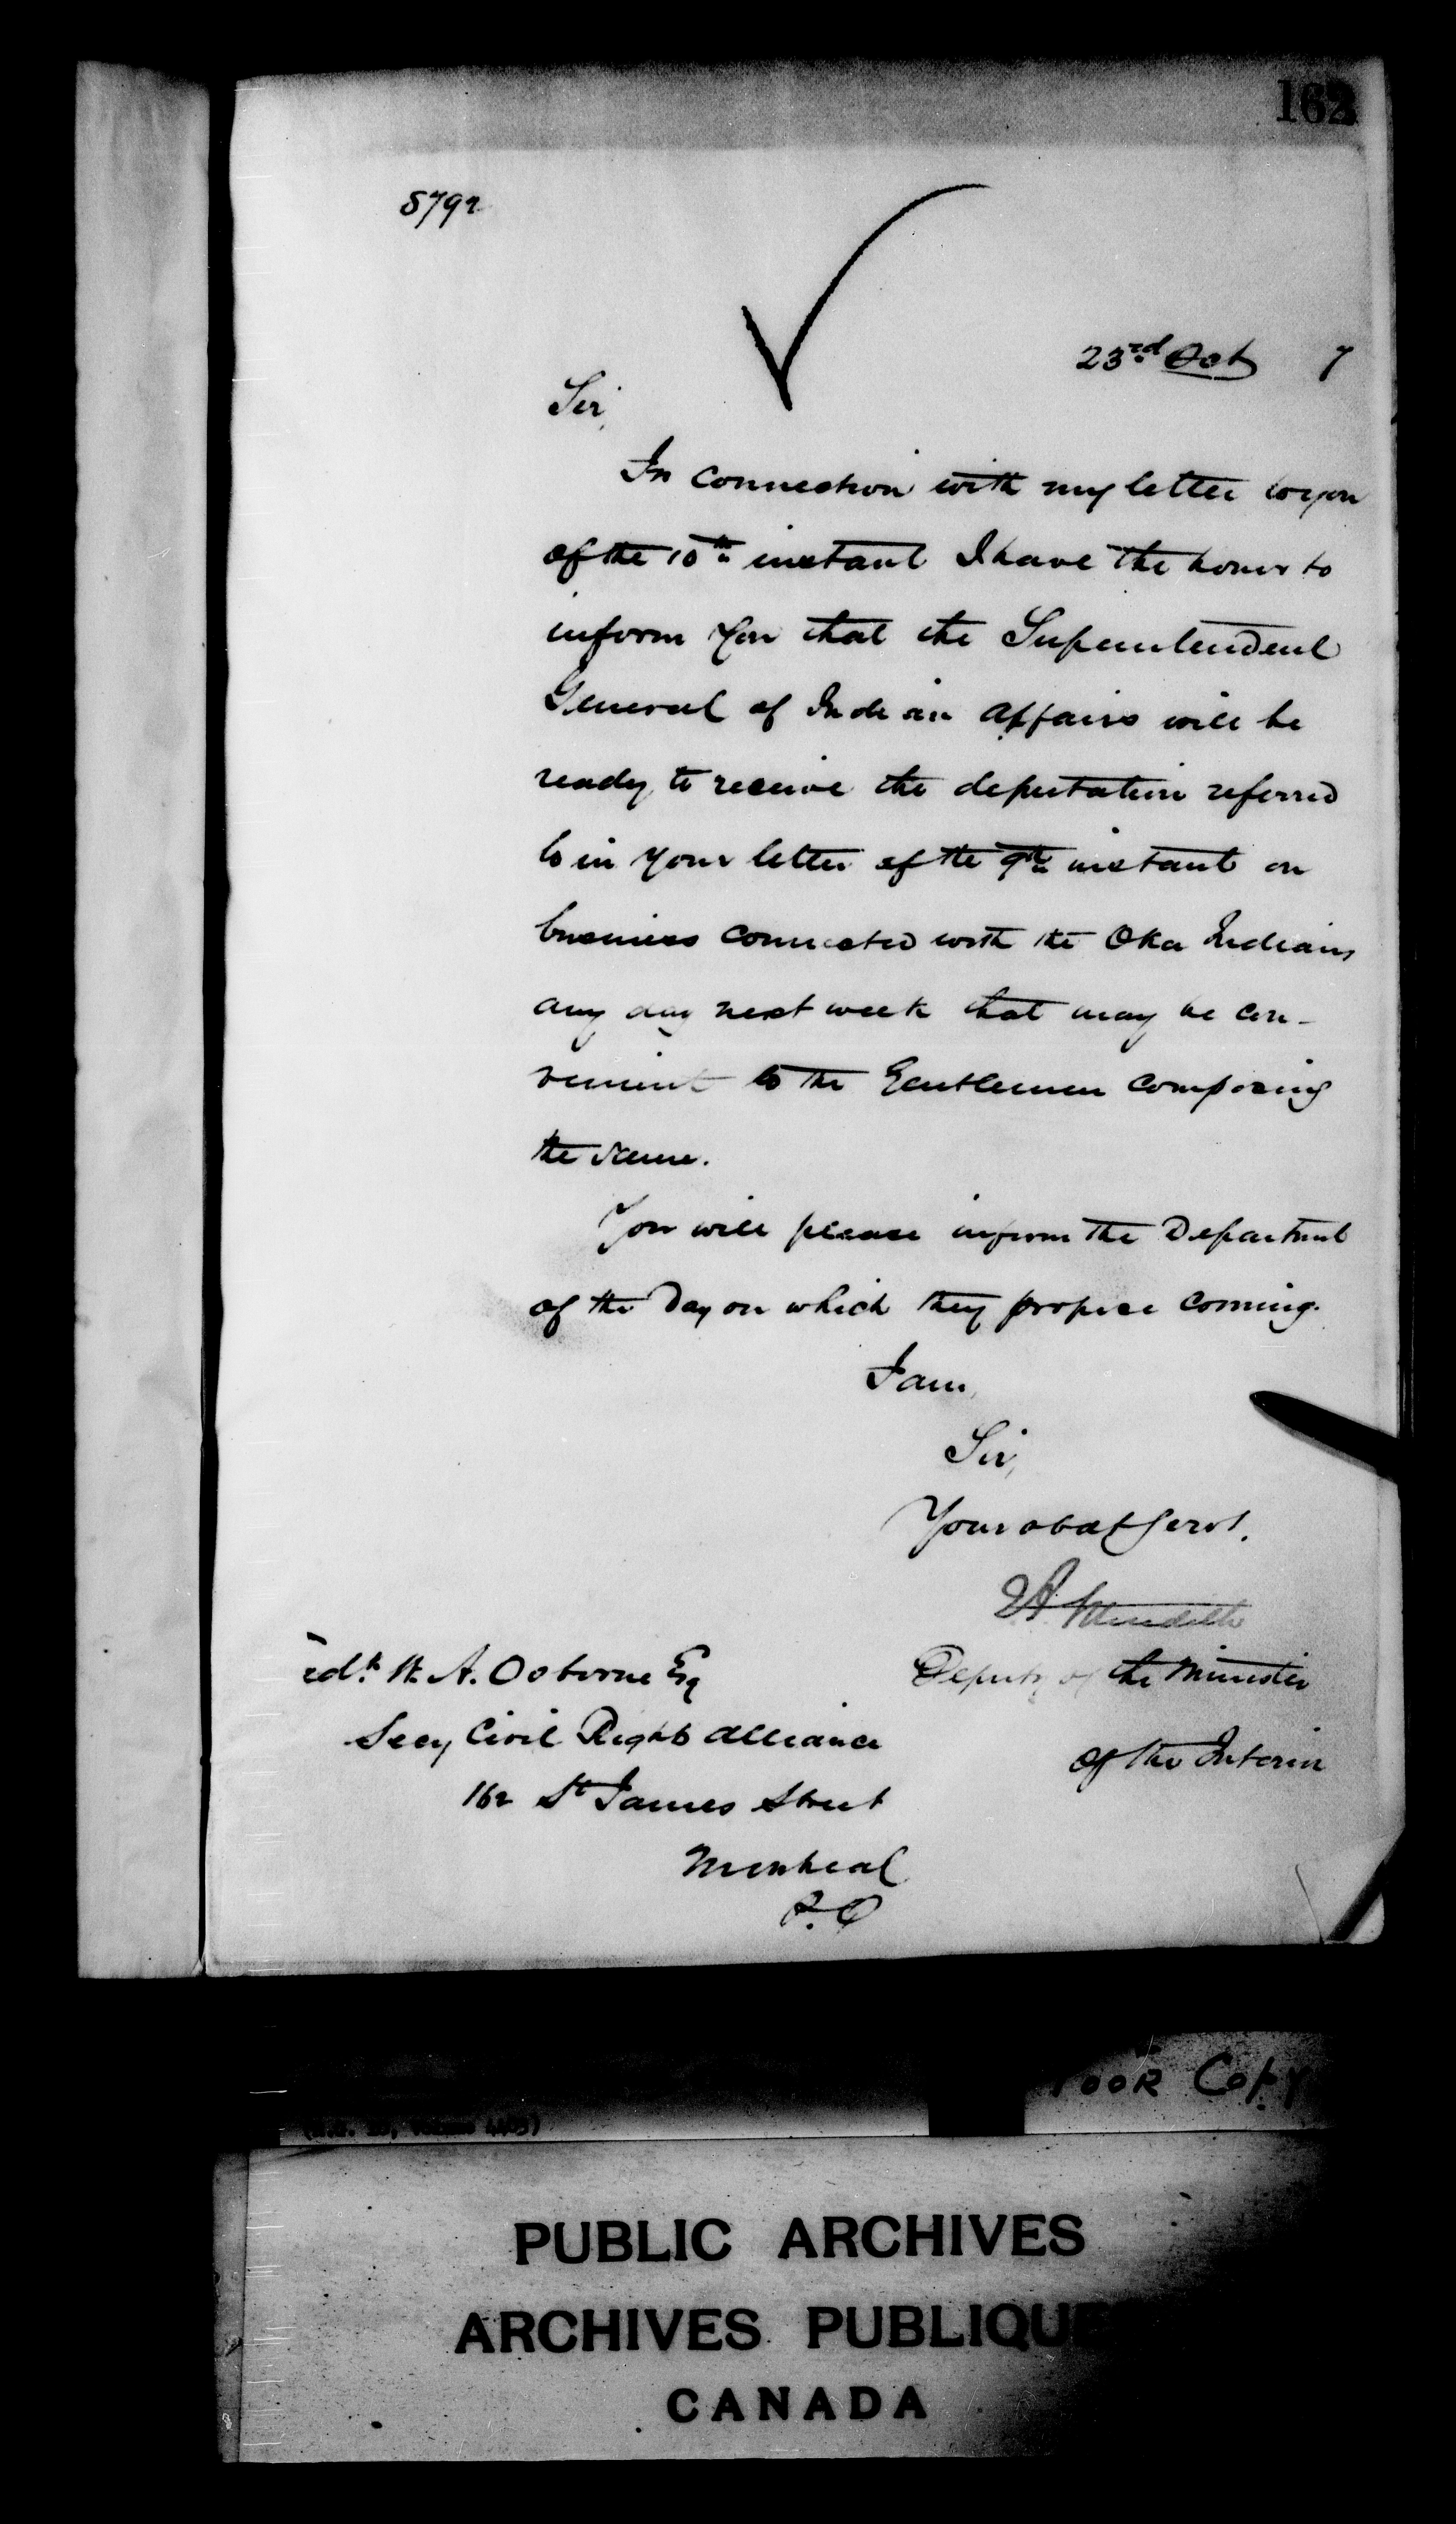 162
5792
23rd Oct 7
Sir,
In connection with my letter to you
of the 10th instant I have the honor to
inform you that the Superintendent
General of Indian Affairs will be
ready to receive the deputation referred
to in your letter of the 9th instant on
business connected with the Oka Indians
any day next week that may be con-
venient to the Gentlemen composing
the same.
You will please inform the Department
of the Day on which they propose coming.
I am,
Sir,
Your obdt servt.
Meredith
Deputy of the Minister
of the Interior
W. A. Osborne Esq
Secy Civil Rights Alliance
162 St James Street
Montreal
P.Q
Poor Copy
PUBLIC ARCHIVES
ARCHIVES PUBLIQUES
CANADA